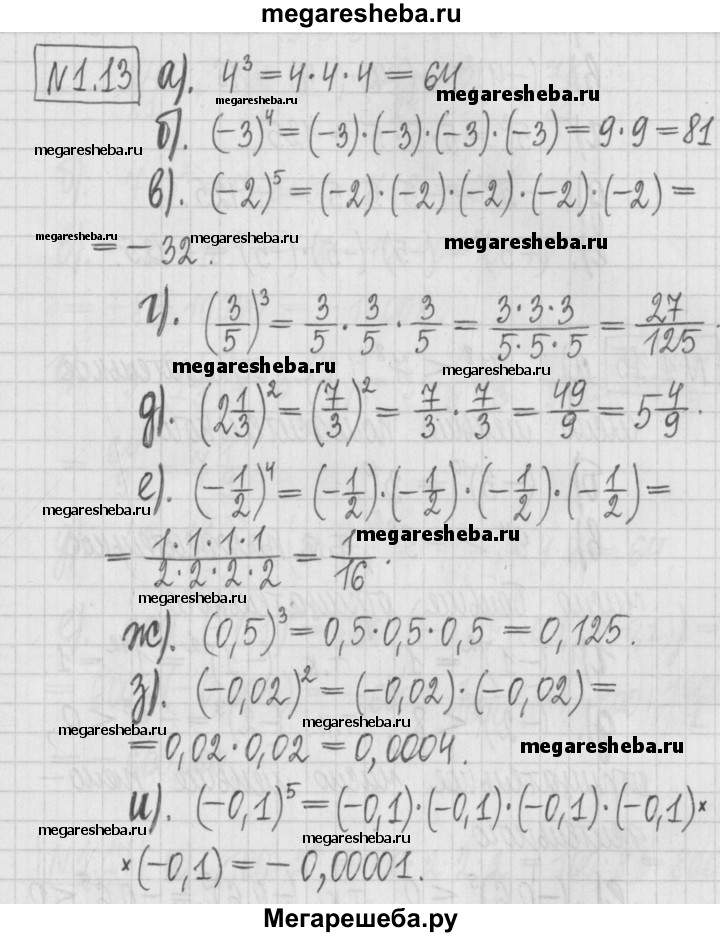 megaresheba.ru
№1.13 а). 4³ = 4·4·4 = 64.
megaresheba.ru
megaresheba.ru
б). (−3)⁴ = (−3)·(−3)·(−3)·(−3) = 9·9 = 81
megaresheba.ru
в). (−2)⁵ = (−2)·(−2)·(−2)·(−2)·(−2) =
megaresheba.ru
= −32.
megaresheba.ru
megaresheba.ru
г). (3/5)³ = 3/5 · 3/5 · 3/5 = 3·3·3/5·5·5 = 27/125.
megaresheba.ru
д). (2 1/3)² = (7/3)² = 7/3 · 7/3 = 49/9 = 5 4/9.
е). (−1/2)⁴ = (−1/2)·(−1/2)·(−1/2)·(−1/2) =
megaresheba.ru
megaresheba.ru
= 1·1·1·1/2·2·2·2 = 1/16.
megaresheba.ru
ж). (0,5)³ = 0,5·0,5·0,5 = 0,125.
з). (−0,02)² = (−0,02)·(−0,02) =
megaresheba.ru
megaresheba.ru
= 0,02·0,02 = 0,0004.
megaresheba.ru
и). (−0,1)⁵ = (−0,1)·(−0,1)·(−0,1)·(−0,1)×
megaresheba.ru
megaresheba.ru
×(−0,1) = −0,00001.
Мегарешеба.ру